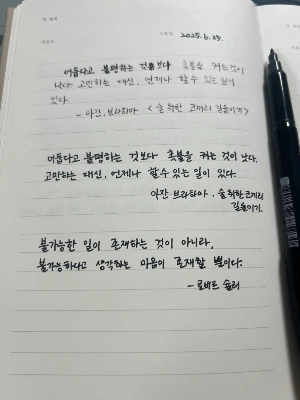 2025. 6. 25.
어둡다고 불평하는 것보다 촛불을 켜는것이
낫다. 고민하는 대신, 언제나 할수 있는 일이
있다.
- 아잔. 브라흐마 <술 취한 코끼리 길들이기>
어둡다고 불평하는 것보다 촛불을 켜는 것이 낫다.
고민하는 대신, 언제나 할수 있는 일이 있다.
아잔 브라흐마, 술 취한 코끼리
길들이기.
불가능한 일이 존재하는 것이 아니라,
불가능하다고 생각하는 마음이 존재할 뿐이다.
- 로버트 슐러